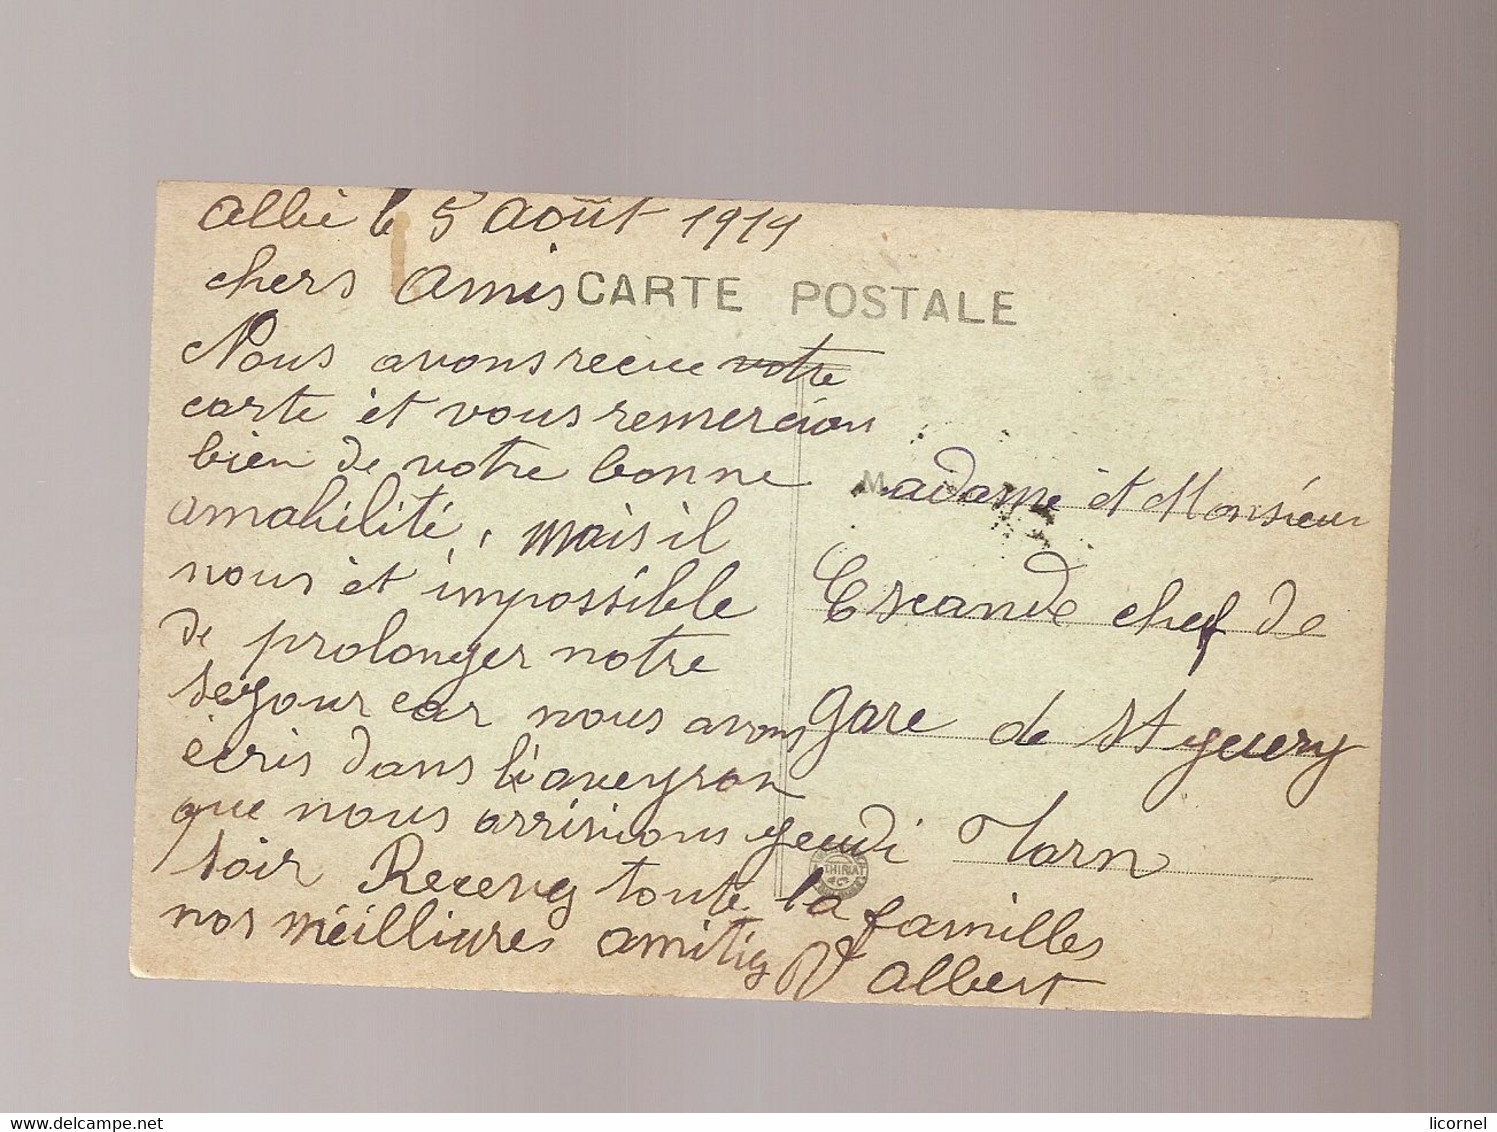 albi le 5 Août 1914
chers Amis
CARTE POSTALE
Nous avons recue votre
carte èt vous remercions
bien de votre bonne
amabilité, mais il
nous èt impossible
de prolonger notre
sejour car nous avons
ècris dans l'aveyron
que nous arrivions jeudi
soir Recevez toute la familles
nos mèilliures amitiés
Albert
M
Madame èt Monsieur
Escande chef de
gare de St Juery
Tarn
THIRIAT
delcampe.net
licornel